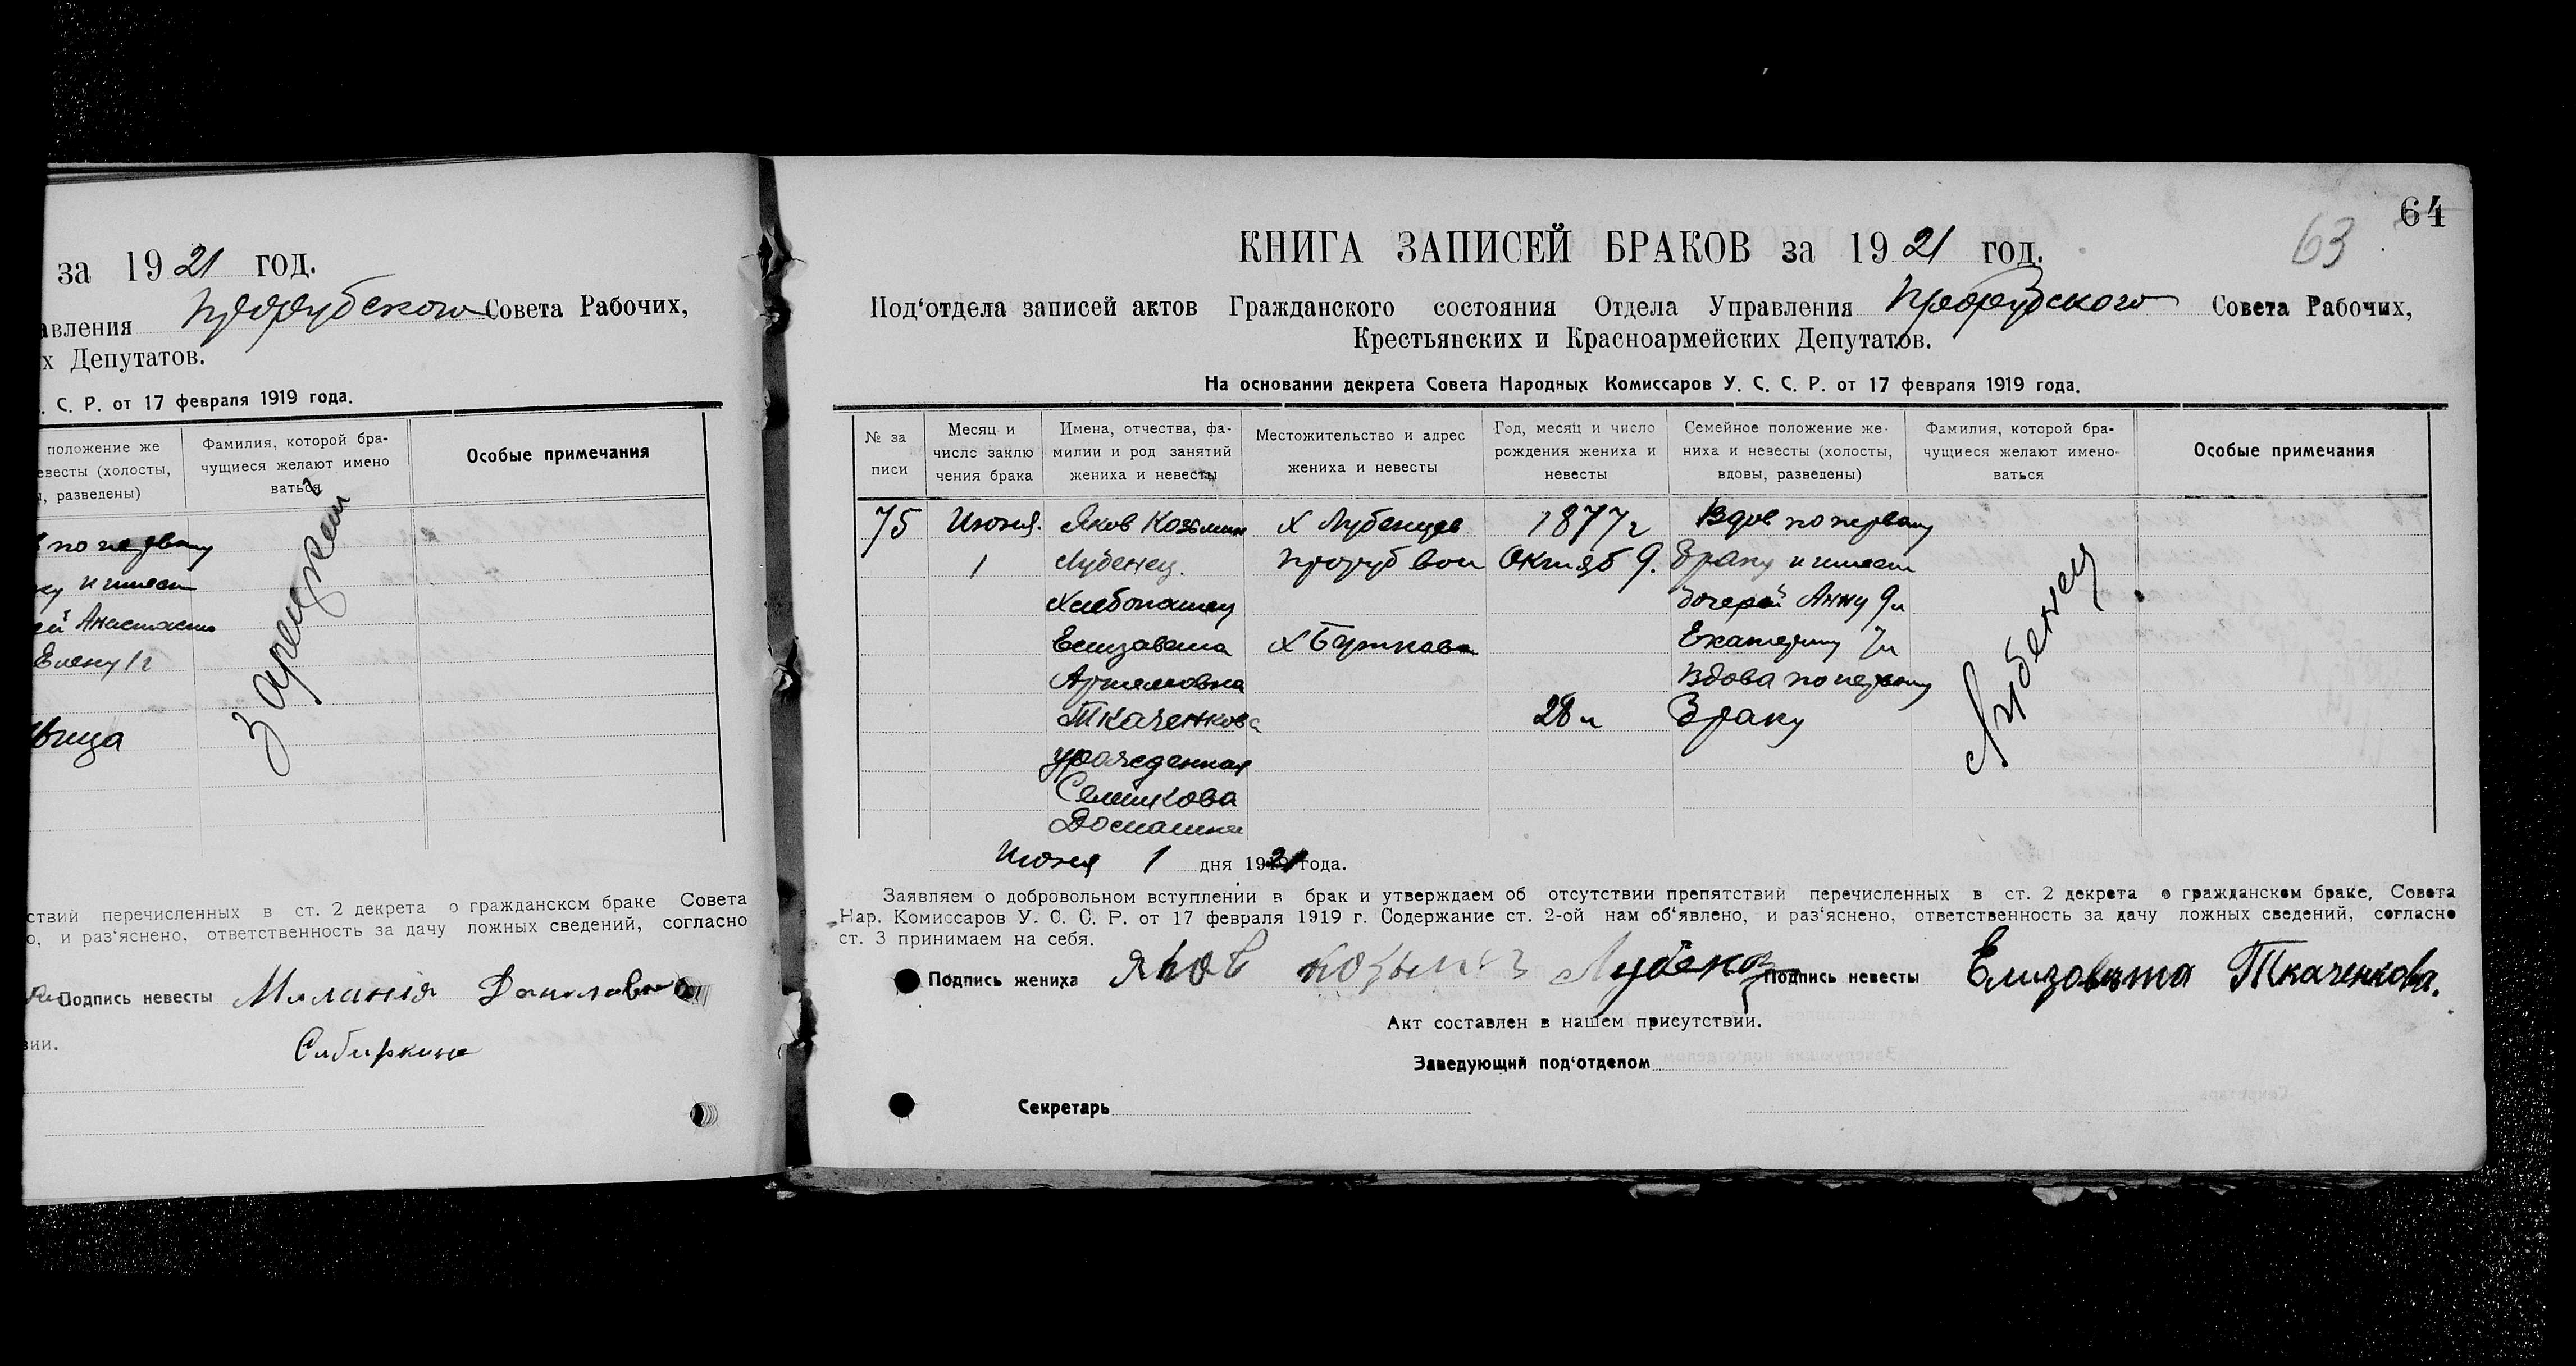 за 1921 год.
авления Прорубского Совета Рабочих,
х Депутатов.
. С. Р. от 17 февраля 1919 года.
положение же
евесты (холосты,
ы, разведены)
Фамилия, которой бра-
чущиеся желают имено
ваться
Особые примечания
в по первому
ку и имеет
ей Анастасию
Елену 1 г
Зарецкей
вица
ствий перечисленных в ст. 2 декрета о гражданском браке Совета
о, и раз'яснено, ответственность за дачу ложных сведений, согласно
Подпись невесты Миланія Даниловна
Сибиркина
вии.
64
63
КНИГА ЗАПИСЕЙ БРАКОВ за 1921 год.
Под'отдела записей актов Гражданского состояния Отдела Управления Прорубского Совета Рабочих,
Крестьянских и Красноармейских Депутатов.
На основании декрета Совета Народных Комиссаров У. С. С. Р. от 17 февраля 1919 года.
№ за
писи
Месяц и
число заклю
чения брака
Имена, отчества, фа-
милии и род занятий
жениха и невесты
Местожительство и адрес
жениха и невесты
Год, месяц и число
рождения жениха и
невесты
Семейное положение же-
ниха и невесты (холосты,
вдовы, разведены)
Фамилия, которой бра-
чущиеся желают имено-
ваться
Особые примечания
75 Июня. Яков Козьмин х Лубенцов 1877 г Вдов по первому
1 Лубенец. Проруб вол Октяб 9. браку и имеет
Хлебопашец дочерей Анну 9 л
Елизавета х Буткова Екатерину 7 л
Артемовна Вдова по первому
Ткаченкова 28 л браку
урожеденная
Семикова
Домашнее
Лубенец
Июня 1 дня 1921 года.
Заявляем о добровольном вступлении в брак и утверждаем об отсутствии препятствий перечисленных в ст. 2 декрета о гражданском браке, Совета
Нар. Комиссаров У. С. С. Р. от 17 февраля 1919 г. Содержание ст. 2-ой нам об'явлено, и раз'яснено, ответственность за дачу ложных сведений, согласно
ст. 3 принимаем на себя.
Подпись жениха Яков Козьмич Лубенец Подпись невесты Елизовета Ткаченкова.
Акт составлен в нашем присутствии.
Заведующий под'отделом
Секретарь